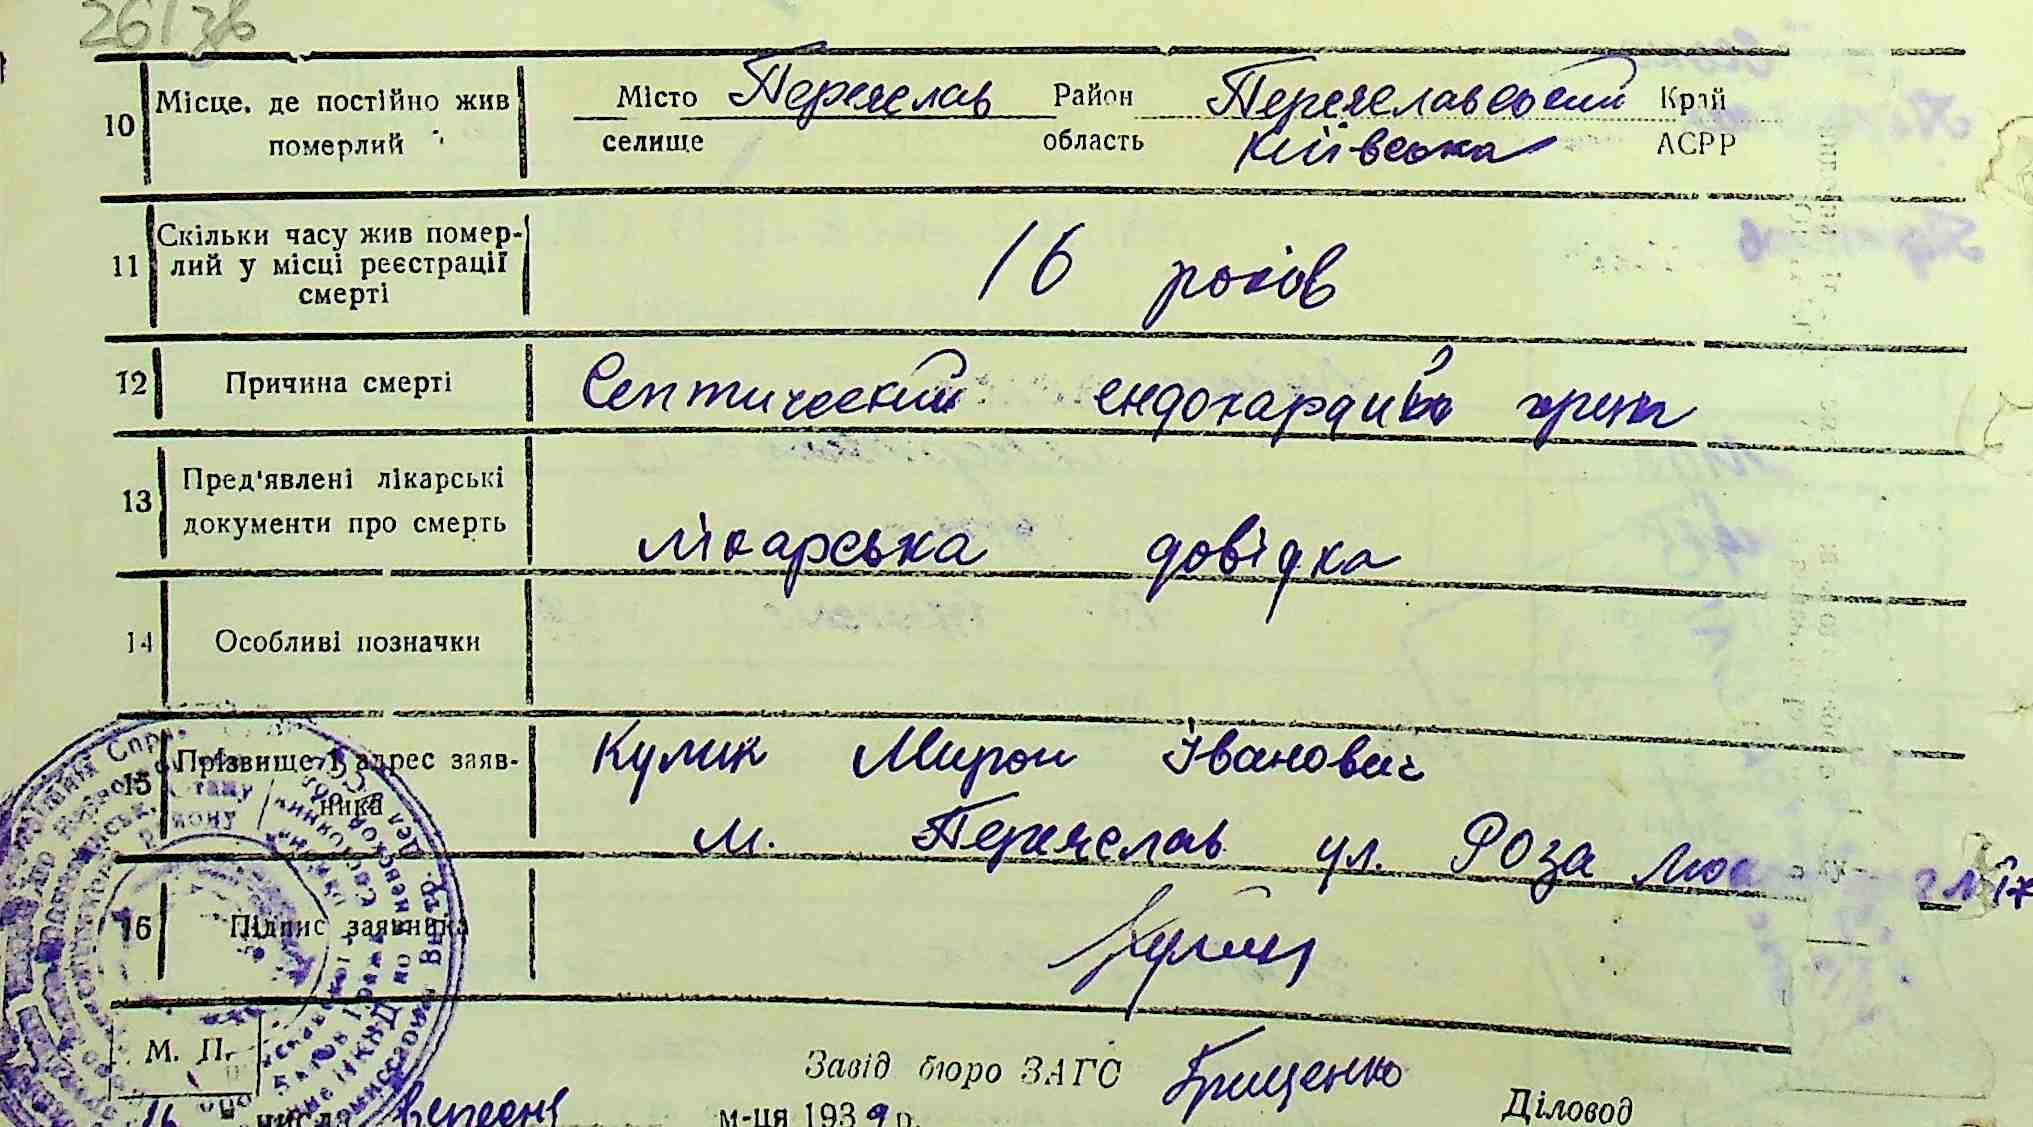 26138
10 Місце, де постійно жив померлий Місто селище Переяслав Район область Переяславський Київська Край АСРР
11 Скільки часу жив помер-
лий у місці реєстрації
смерті 16 років
12 Причина смерті Септический ендокардит
13 Пред'явлені лікарські
документи про смерть лікарська довідка
14 Особливі позначки
15 Прізвище і адрес заяв-
ника Кулик Мирон Іванович
м. Переяслав ул. Роза Люк
16 Підпис заявника Кулик
М. П.
Завід бюро ЗАГС Грищенко
Діловод
16 числа вересня м-ця 1939 р.